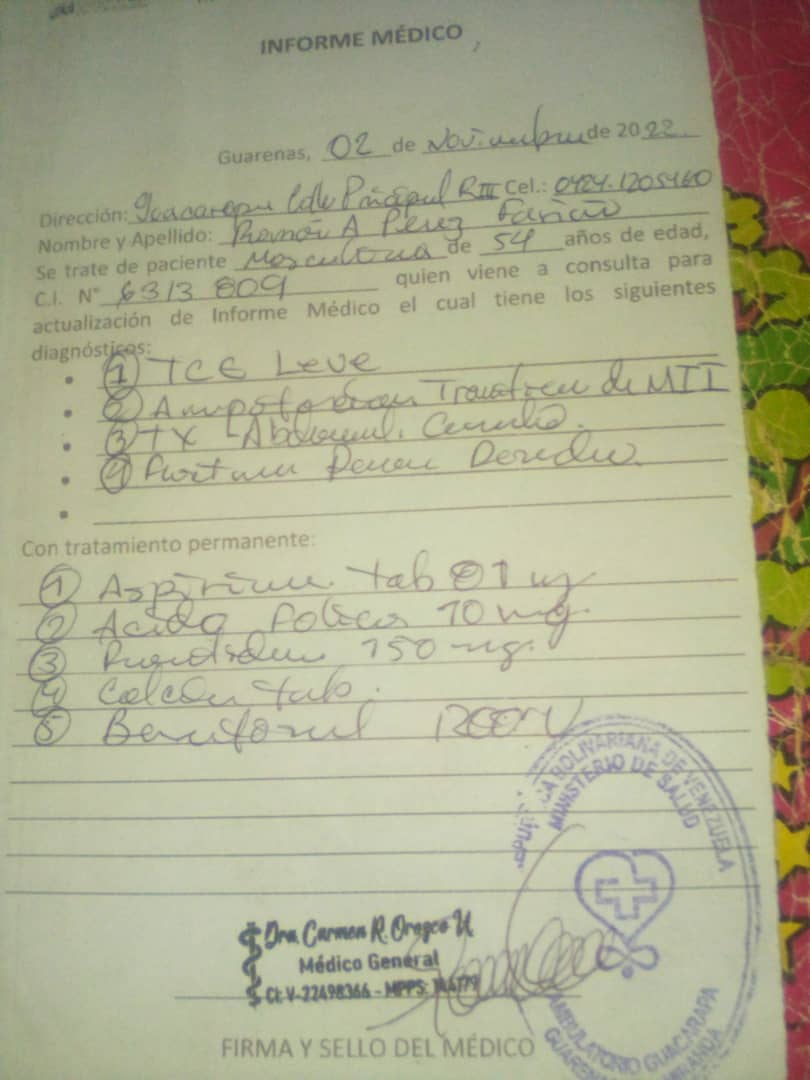 INFORME MÉDICO
Guarenas, 02 de Noviembre de 2022
Dirección: Calle Principal Cel.: 0424.1205460
Nombre y Apellido: A Pérez
Se trate de paciente Masculino de 54 años de edad,
C.I. N° 6313 809 quien viene a consulta para
actualización de Informe Médico el cual tiene los siguientes
diagnósticos:
• ① TCE Leve
• ② de MII
• ③ TX Abdominal Cerrado.
• ④ Derecho
•
Con tratamiento permanente:
① Aspirina tab 81 mg
② Acido Folico 10 mg.
③ 150 mg.
④ Calcio tab.
⑤
REPUBLICA BOLIVARIANA DE VENEZUELA
MINISTERIO DE SALUD
AMBULATORIO GUACARAPA
Dra. Carmen R. Orozco U.
Médico General
CI: V-22498366 - MPPS:
FIRMA Y SELLO DEL MÉDICO